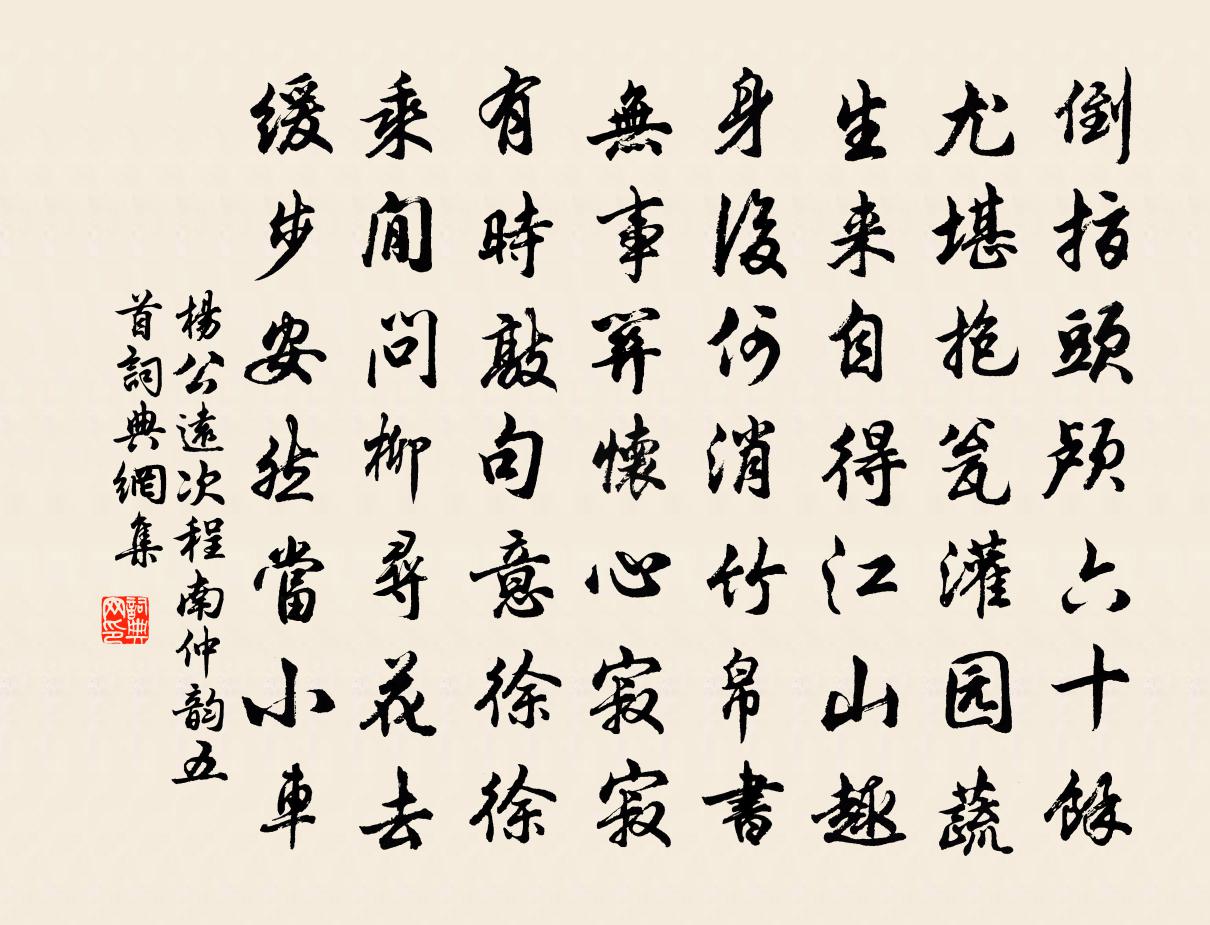 倒指頭颅六十餘
尤堪抱瓮灌园蔬
生来自得江山趣
身後何消竹帛書
無事關懷心寂寂
有時敲句意徐徐
乘閒問柳尋花去
緩步安然當小車
楊公遠次程南仲韵五
首詞典網集
詞典
网印